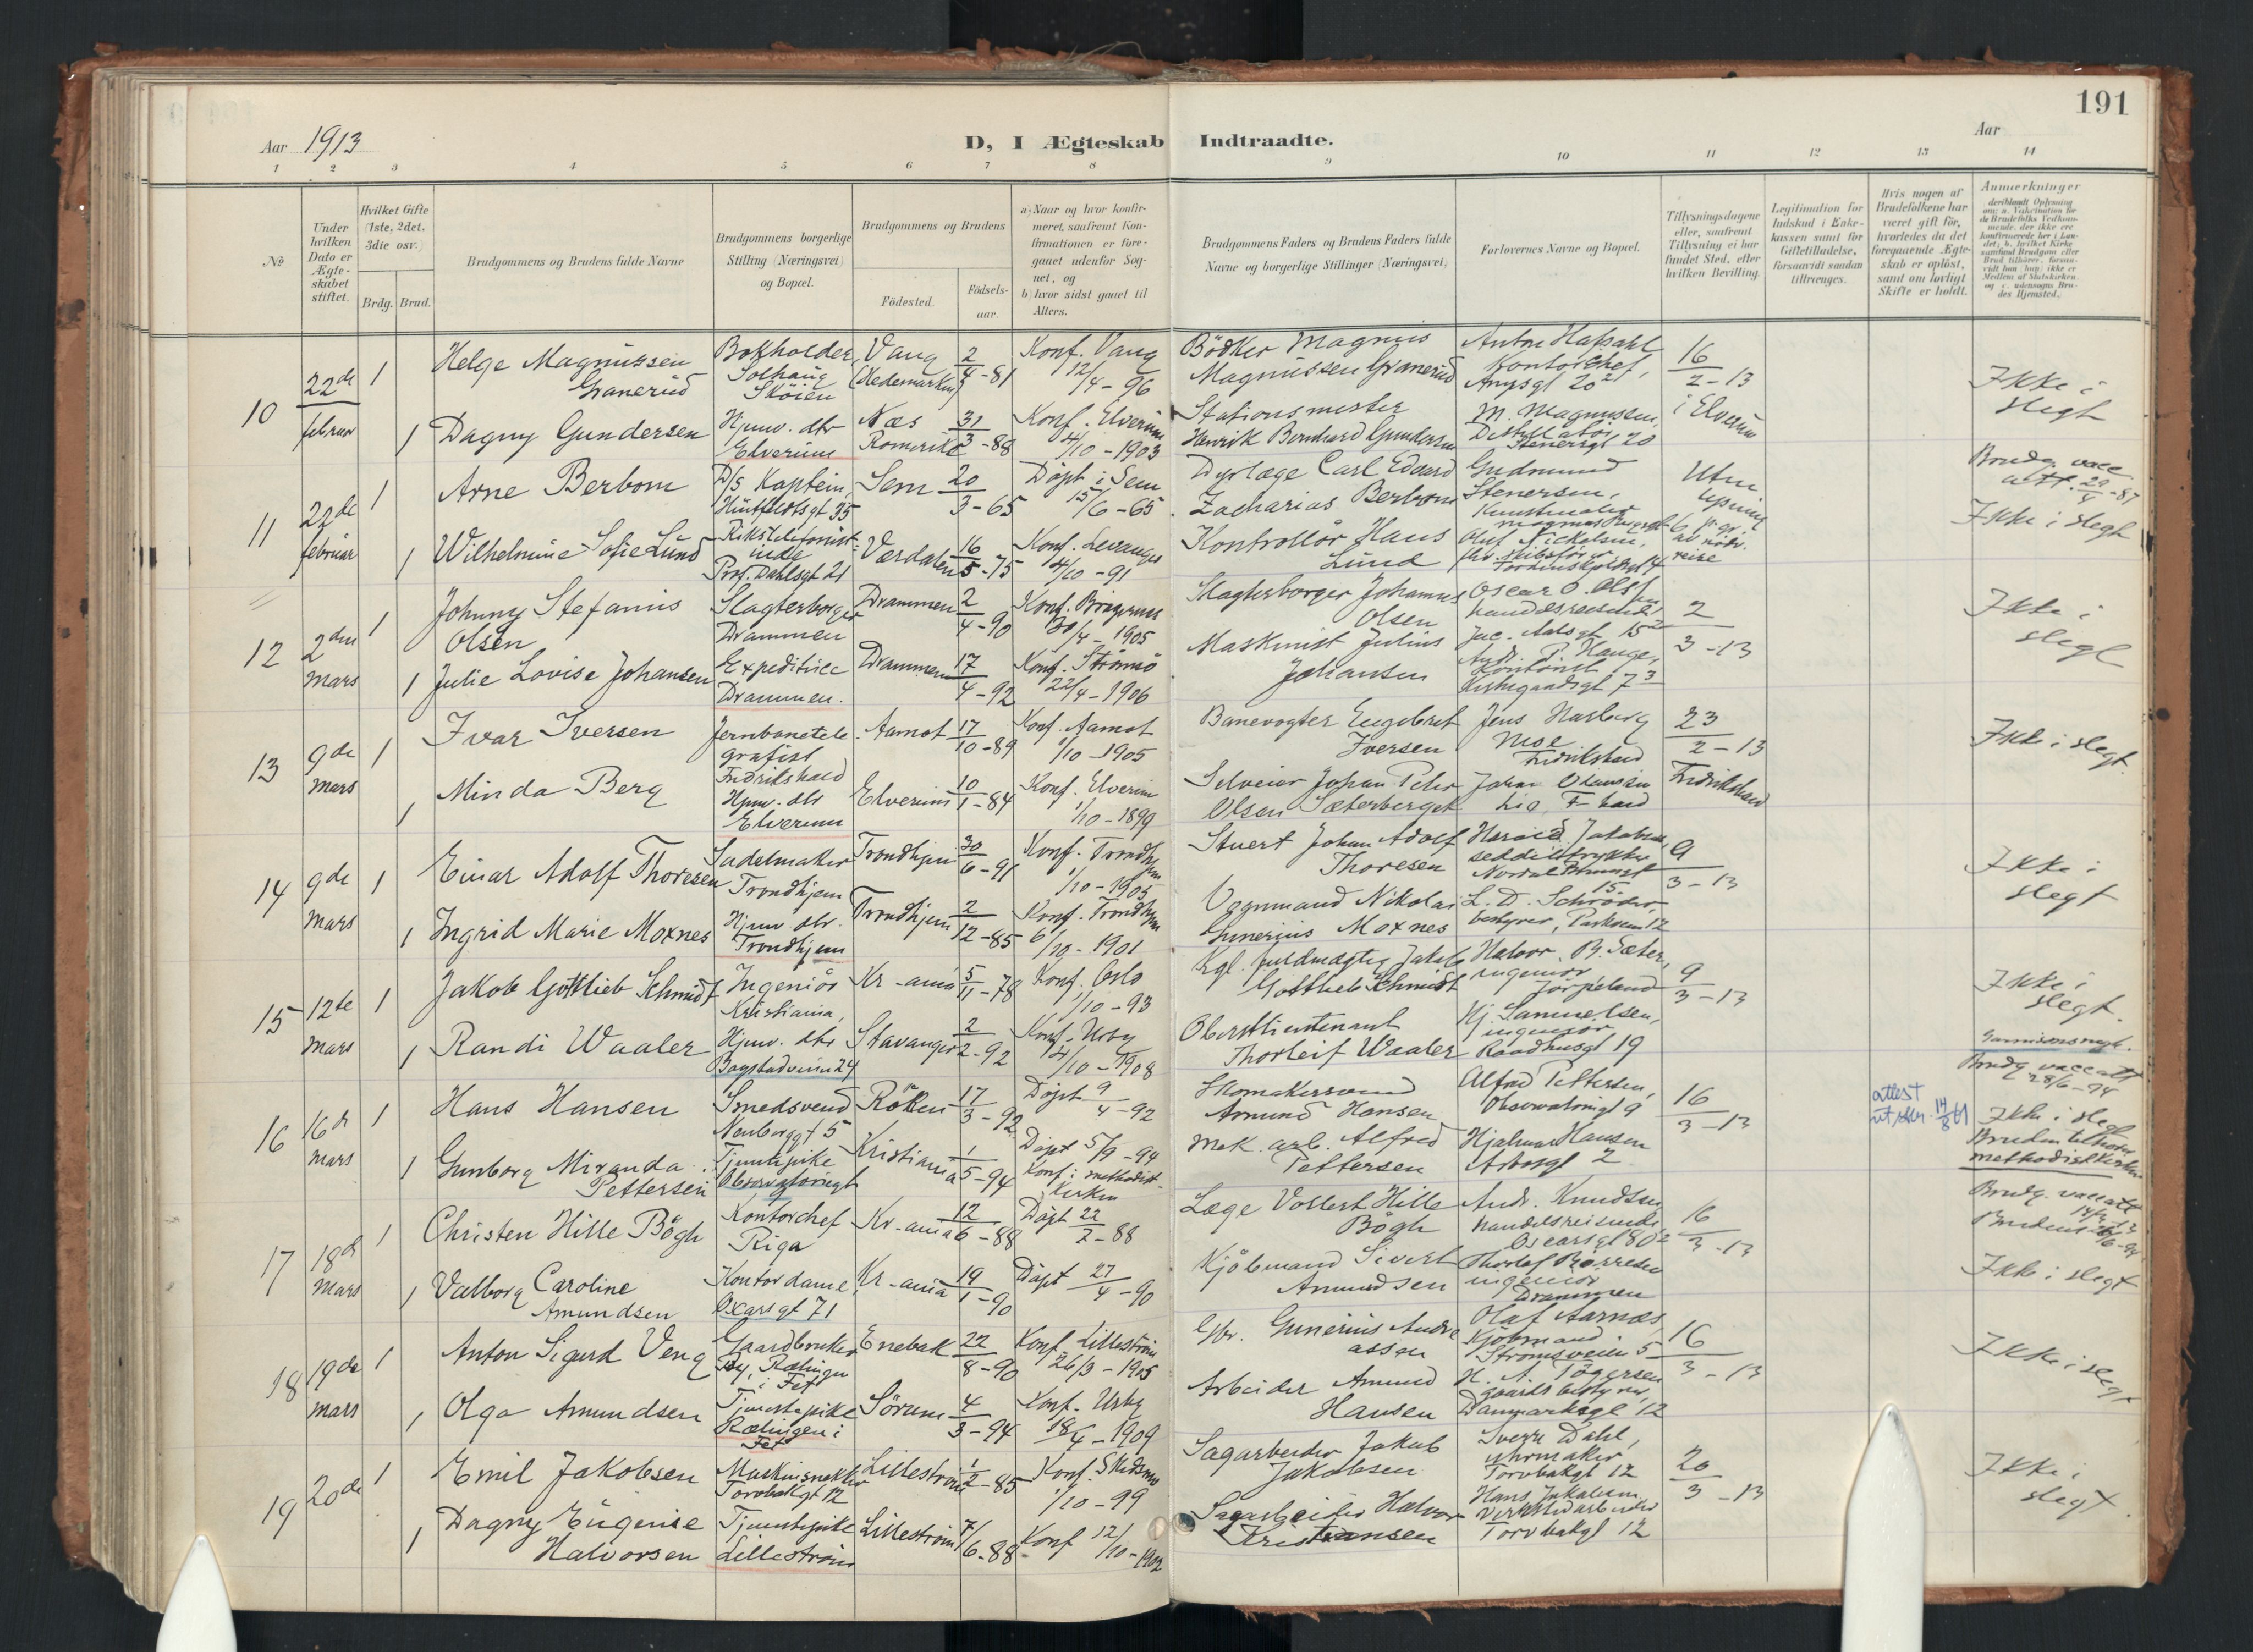 191
Aar 1913
D, I Ægteskab Indtraadte.
Aar
1 2 3 4 5 6 7 8 9 10 11 12 13 14
No
Under hvilken Dato er Ægteskabet stiftet.
Hvilket Gifte (1ste, 2det, 3die osv.)
Brdg. Brud.
Brudgommens og Brudens fulde Navne
Brudgommens borgerlige Stilling (Næringsvei) og Bopæl.
Brudgommens og Brudens
Födested.
Födsels-aar.
a) Naar og hvor konfirmeret, saafremt Konfirmationen er foregaaet udenfor Sognet, og
b) hvor sidst gaaet til Alters.
Brudgommens Faders og Brudens Faders fulde Navne og borgerlige Stillinger (Næringsvei)
Forlovernes Navne og Bopæl.
Tillysningsdagene eller, saafremt Tillysning ei har fundet Sted, efter hvilken Bevilling.
Legitimation for Indskud i Enkekassen samt for Giftetilladelse, forsaavidt saadan tiltrænges.
Hvis nogen af Brudefolkene har været gift för, hvorledes da det foregaaende Ægteskab er oplöst, samt om lovligt Skifte er holdt.
Anmærkninger
10
22de februar
1 Helge Magnussen Granerud
Bokholder Solhaug Sköien
Vang (Hedemarken)
2/4-81
Konf. Vang 12/4-96
Bödker Magnus Magnussen Granerud
Kontorchef,
16/2-13 i Elverum
Ikke i slegt
1 Dagny Gundersen
Hjemv. dtr Elverum
Næs Romerike
31/3-88
Konf. Elverum 4/10-1903
Stationsmester Henrik Bernhard Gundersen
M. Magnussen, Stenersgt 20
11
22de februar
1 Arne Berbom
D/S Kaptein, Huitfeldtsgt 35
Sem
20/3-65
Döpt i Sem 15/6-65
Dyrlæge Carl Edvard Zacharias Berbom
Gudmund Stenersen, Kunstmaler
Brudg. vacc. att. 29/4-87
1 Wilhelmine Sofie Lund
Rikstelefonistinde Prof. Dahlsgt 21
Værdalen
16/5-75
Konf. Levanger 14/10-91
Kontrollör Hans Lund
Ikke i slegt
12
2den mars
1 Johnny Stefanus Olsen
Slagterborger Drammen
Drammen
2/4-90
Konf. Bragernes 30/4-1905
Slagterborger Johannes Olsen
Oscar O. Olsen handelsreisende, Jac. Aalsgt 15
2/3-13
Ikke i slegt
1 Julie Lovise Johansen
Expeditrice Drammen.
Drammen
17/4-92
Konf. Strömsö 22/4-1906
Maskinist Julius Johansen
Andr. P. Hauge, Kontorist Kirkegaardsgt 7
13
9de mars
1 Ivar Iversen
Jernbanetelegrafist Fredrikshald
Aamot
17/10-89
Konf. Aamot 1/10-1905
Banevogter Engebret Iversen
Jens Hasberg Moe Fredrikshald
23/2-13 Fredrikshald
Ikke i slegt.
1 Minda Berg
Hjemv. dtr Elverum
Elverum
10/1-84
Konf. Elverum 1/10-1899
Selveier Johan Peder Olsen Sæterberget
14
9de mars
1 Einar Adolf Thoresen
Sadelmaker Trondhjem
Trondhjem
30/6-91
Konf. Trondhjem 1/10-1905
Stuert Johan Adolf Thoresen
Harald Jakobsen seddeltrykker Nordal Brunsgt 15.
9/3-13
Ikke i slegt
1 Ingrid Marie Moxnes
Hjemv. dtr. Trondhjem
Trondhjem
2/12-85
Konf. Trondhjem 6/10-1901
Vognmand Nikolai Gunerius Moxnes
L. D. Schröder, bestyrer, Parkveien 12
15
12te mars
1 Jakob Gottlieb Schmidt
Ingeniör Kristiania,
Kr-ania
5/11-78
Konf. Oslo 1/10-93
Kgl. fuldmægtig Jakob Gottlieb Schmidt
Halvor B. Sæter, ingeniör, Jörpeland
9/3-13
Ikke i slegt.
1 Randi Waaler
Hjemv. dtr Bogstadveien 24
Stavanger
2/2-92
Konf. Urby 14/10-1908
Oberstlieutenant Thorleif Waaler
Hj. Samuelsen, ingeniör Raadhusgt 19
Garnisonsmgh.
16
16de mars
1 Hans Hansen
Smedsvend Neuberggt 5
Röken
17/3-92
Döpt 9/4-92
Skomakersvend Amund Hansen
Alfred Pettersen, Observatoriegt 9
16/3-13
attest utstr. 14/8 61
Brudg vacc att 28/6-94
Ikke i slegt
Bruden tilhörer methodistkirken
1 Gunborg Miranda Pettersen
Tjenestepike Observatoriegt
Kristiania
1/5-94
Döpt 5/9-94 Konf. i methodistkirken
Mek. arb. Alfred Pettersen
Hjalmar Hansen Arbosgt 2
17
18de mars
1 Christen Hille Bögh
Kontorchef Riga
Kr-ania
12/6-88
Döpt 22/7-88
Læge Vollert Hille Bögh
Andr. Knudsen handelsreisende, Oscarsgt 80
16/3-13
Brudg. vacc att
Ikke i slegt
1 Valborg Caroline Amundsen
Kontordame, Oscarsgt 71
Kr-ania
19/1-90
Döpt 27/4-90
Kjöbmand Sivert Amundsen
Thorlef Börresen ingeniör Drammen
18
19de mars
1 Anton Sigurd Veng
Gaardbruker By, Rælingen i Fet
Enebak
22/8-90
Konf. Lilleström 26/3-1905
Gbr. Gunerius Andreassen
Olaf Aarnæs, Kjöbmand Strömsveien 5
16/3-13
Ikke i slegt
1 Olga Amundsen
Tjenestepike Rælingen i Fet
Sörum
4/3-94
Konf. Urby 18/4-1909
Arbeider Amund Hansen
H. A. Tögersen gaardsbestyrer, Danmarksgt 12
19
20de
1 Emil Jakobsen
Maskinsnekker Torvbakgt 12
Lilleström
1/2-85
Konf. Skedsmo 1/10-99
Sagarbeider Jakob Jakobsen
Sverre Dahl, uhrmaker Torvbakgt 12
20/3-13
Ikke i slegt.
1 Dagny Eugenie Halvorsen
Tjenestepike Lilleström
Lilleström
7/6-88
Konf 12/10-1902
Sagarbeider Halvor Kristiansen
Hans Jakobsen verkstedarbeider Torvbakgt 12